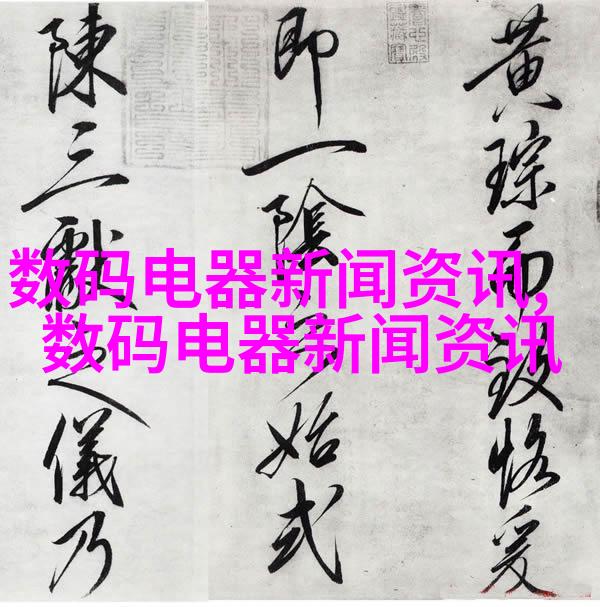 数码电器新闻资讯,
数码电器新闻资讯
黄琮而致恪爰
即一陰之始式
陳三獻之儀乃